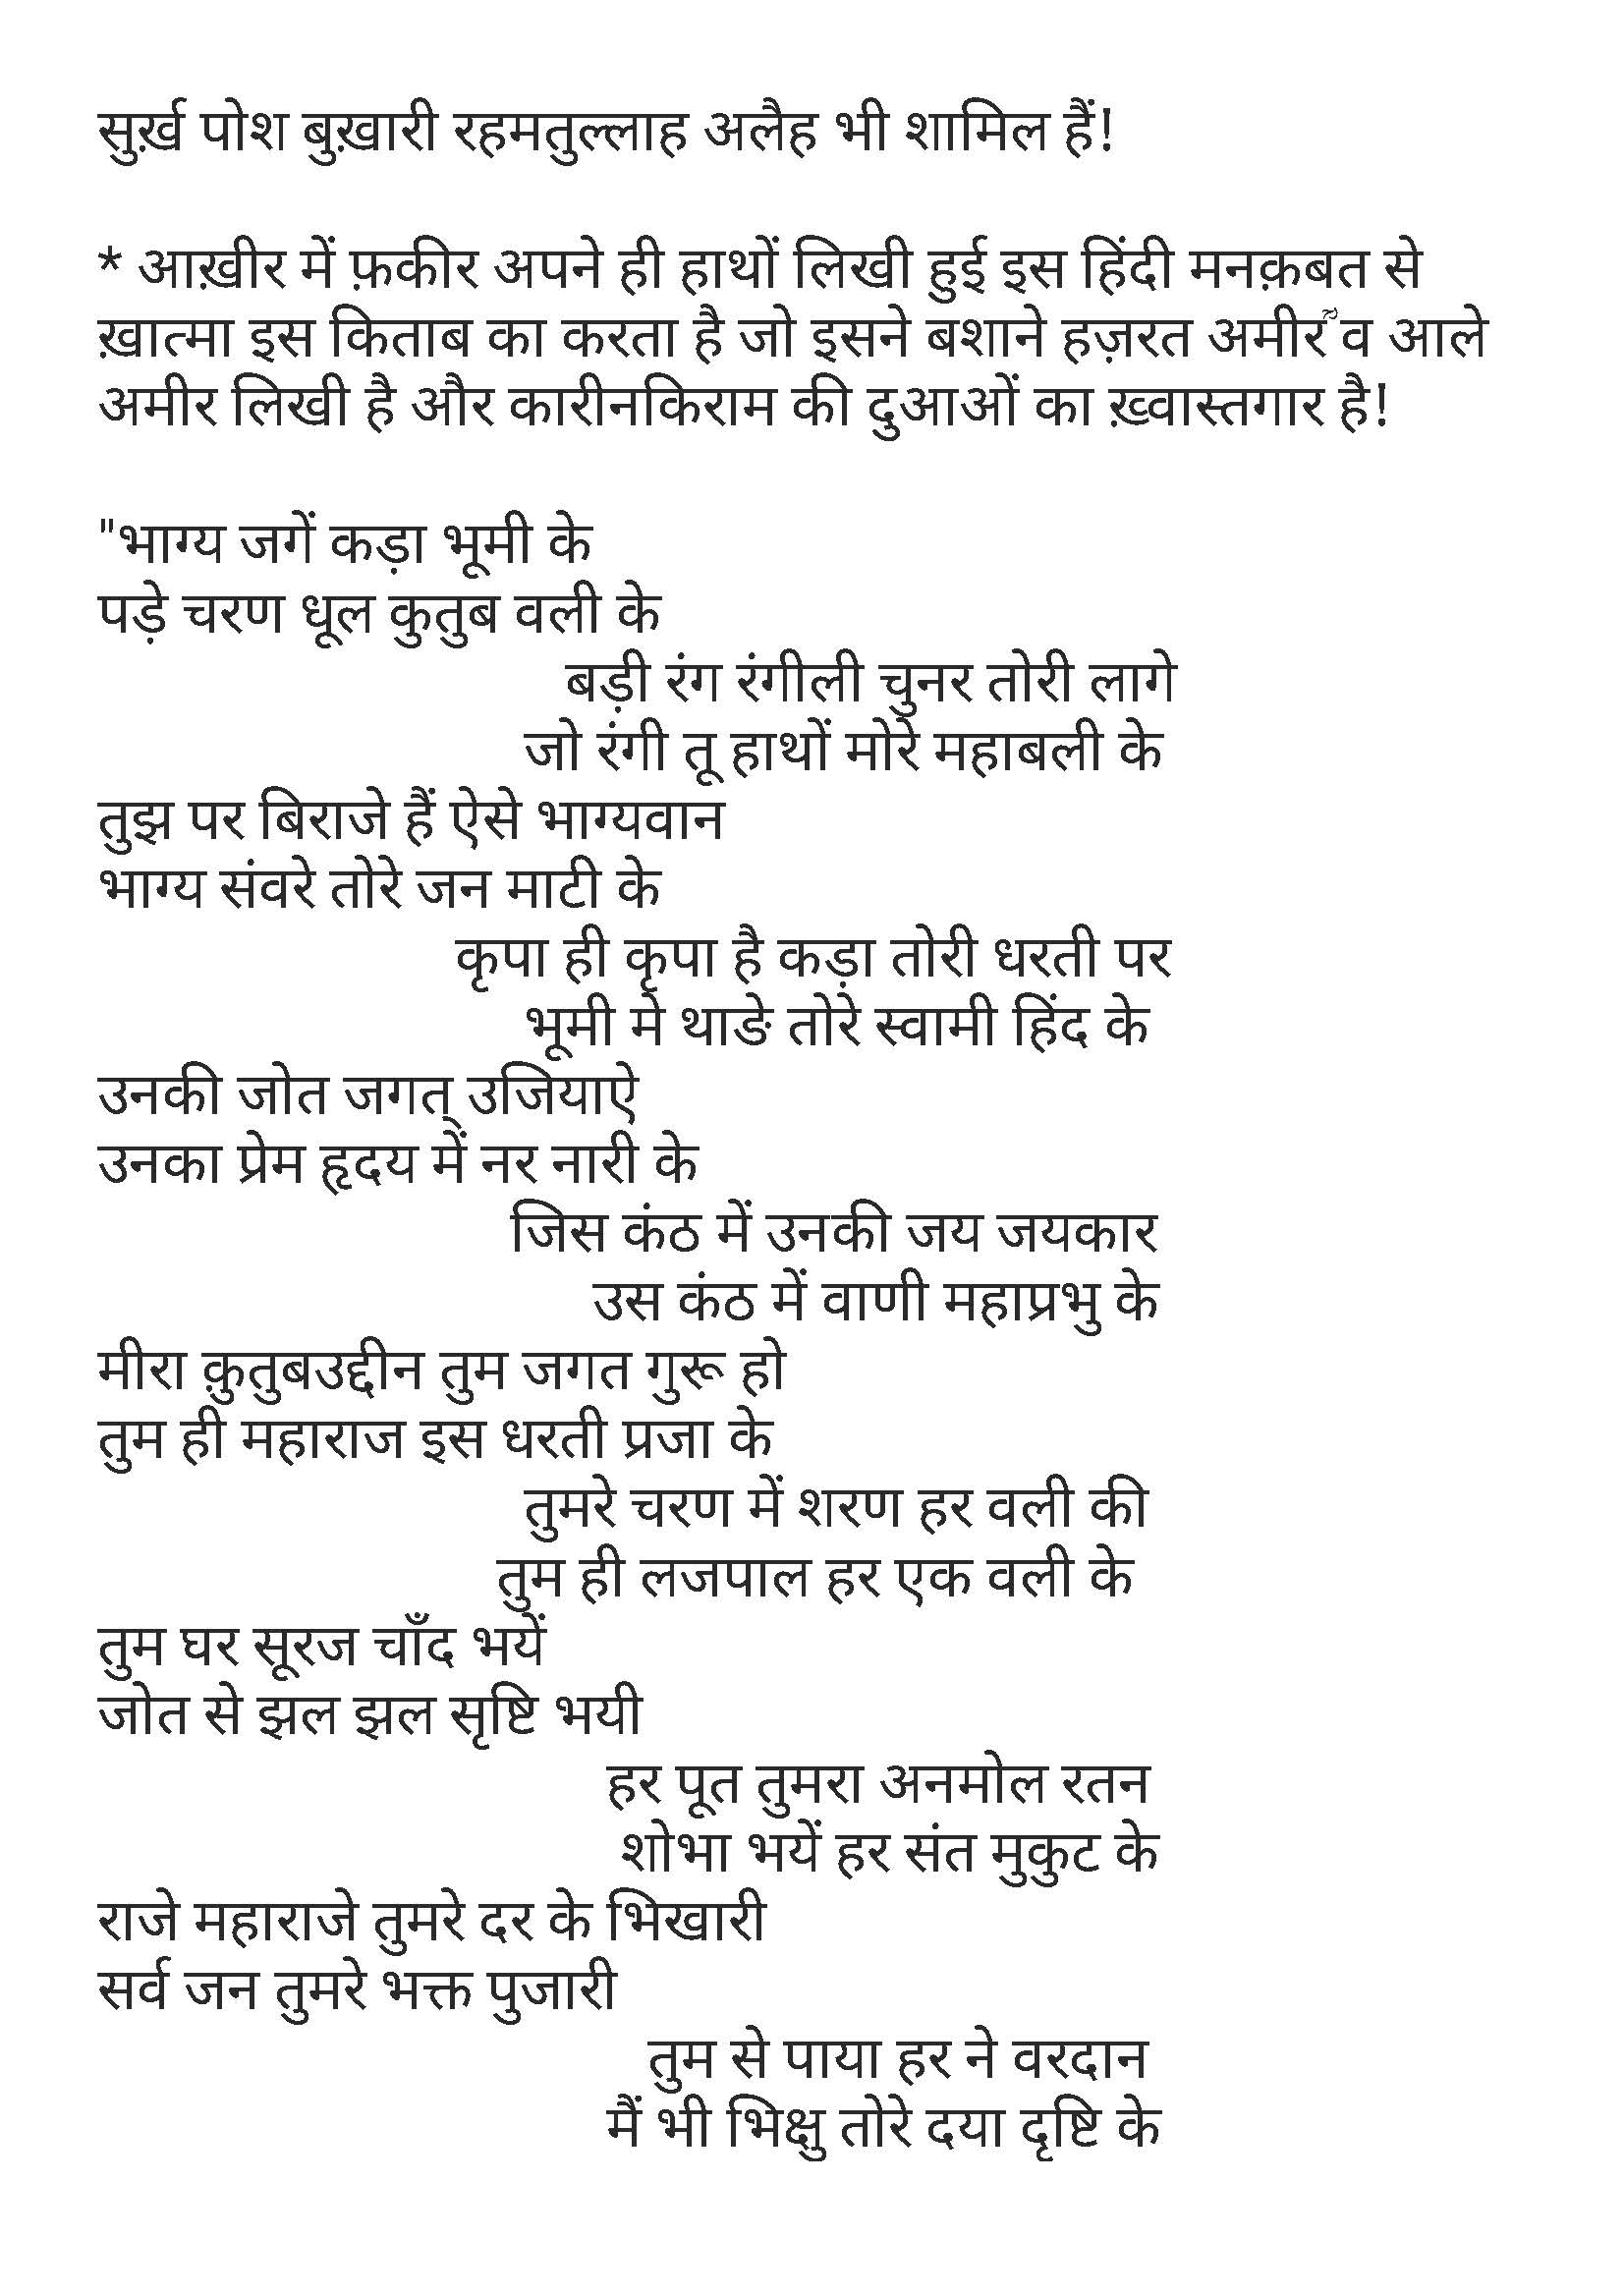 सुर्ख़ पोश बुख़ारी रहमतुल्लाह अलैह भी शामिल हैं!
* आख़ीर में फ़कीर अपने ही हाथों लिखी हुई इस हिंदी मनक़बत से
ख़ात्मा इस किताब का करता है जो इसने बशाने हज़रत अमीरؒ व आले
अमीर लिखी है और कारीनकिराम की दुआओं का ख़्वास्तगार है!
"भाग्य जगें कड़ा भूमी के
पड़े चरण धूल कुतुब वली के
बड़ी रंग रंगीली चुनर तोरी लागे
जो रंगी तू हाथों मोरे महाबली के
तुझ पर बिराजे हैं ऐसे भाग्यवान
भाग्य संवरे तोरे जन माटी के
कृपा ही कृपा है कड़ा तोरी धरती पर
भूमी मे थाङे तोरे स्वामी हिंद के
उनकी जोत जगत् उजियाऐ
उनका प्रेम हृदय में नर नारी के
जिस कंठ में उनकी जय जयकार
उस कंठ में वाणी महाप्रभु के
मीरा क़ुतुबउद्दीन तुम जगत गुरू हो
तुम ही महाराज इस धरती प्रजा के
तुमरे चरण में शरण हर वली की
तुम ही लजपाल हर एक वली के
तुम घर सूरज चाँद भयें
जोत से झल झल सृष्टि भयी
हर पूत तुमरा अनमोल रतन
शोभा भयें हर संत मुकुट के
राजे महाराजे तुमरे दर के भिखारी
सर्व जन तुमरे भक्त पुजारी
तुम से पाया हर ने वरदान
मैं भी भिक्षु तोरे दया दृष्टि के